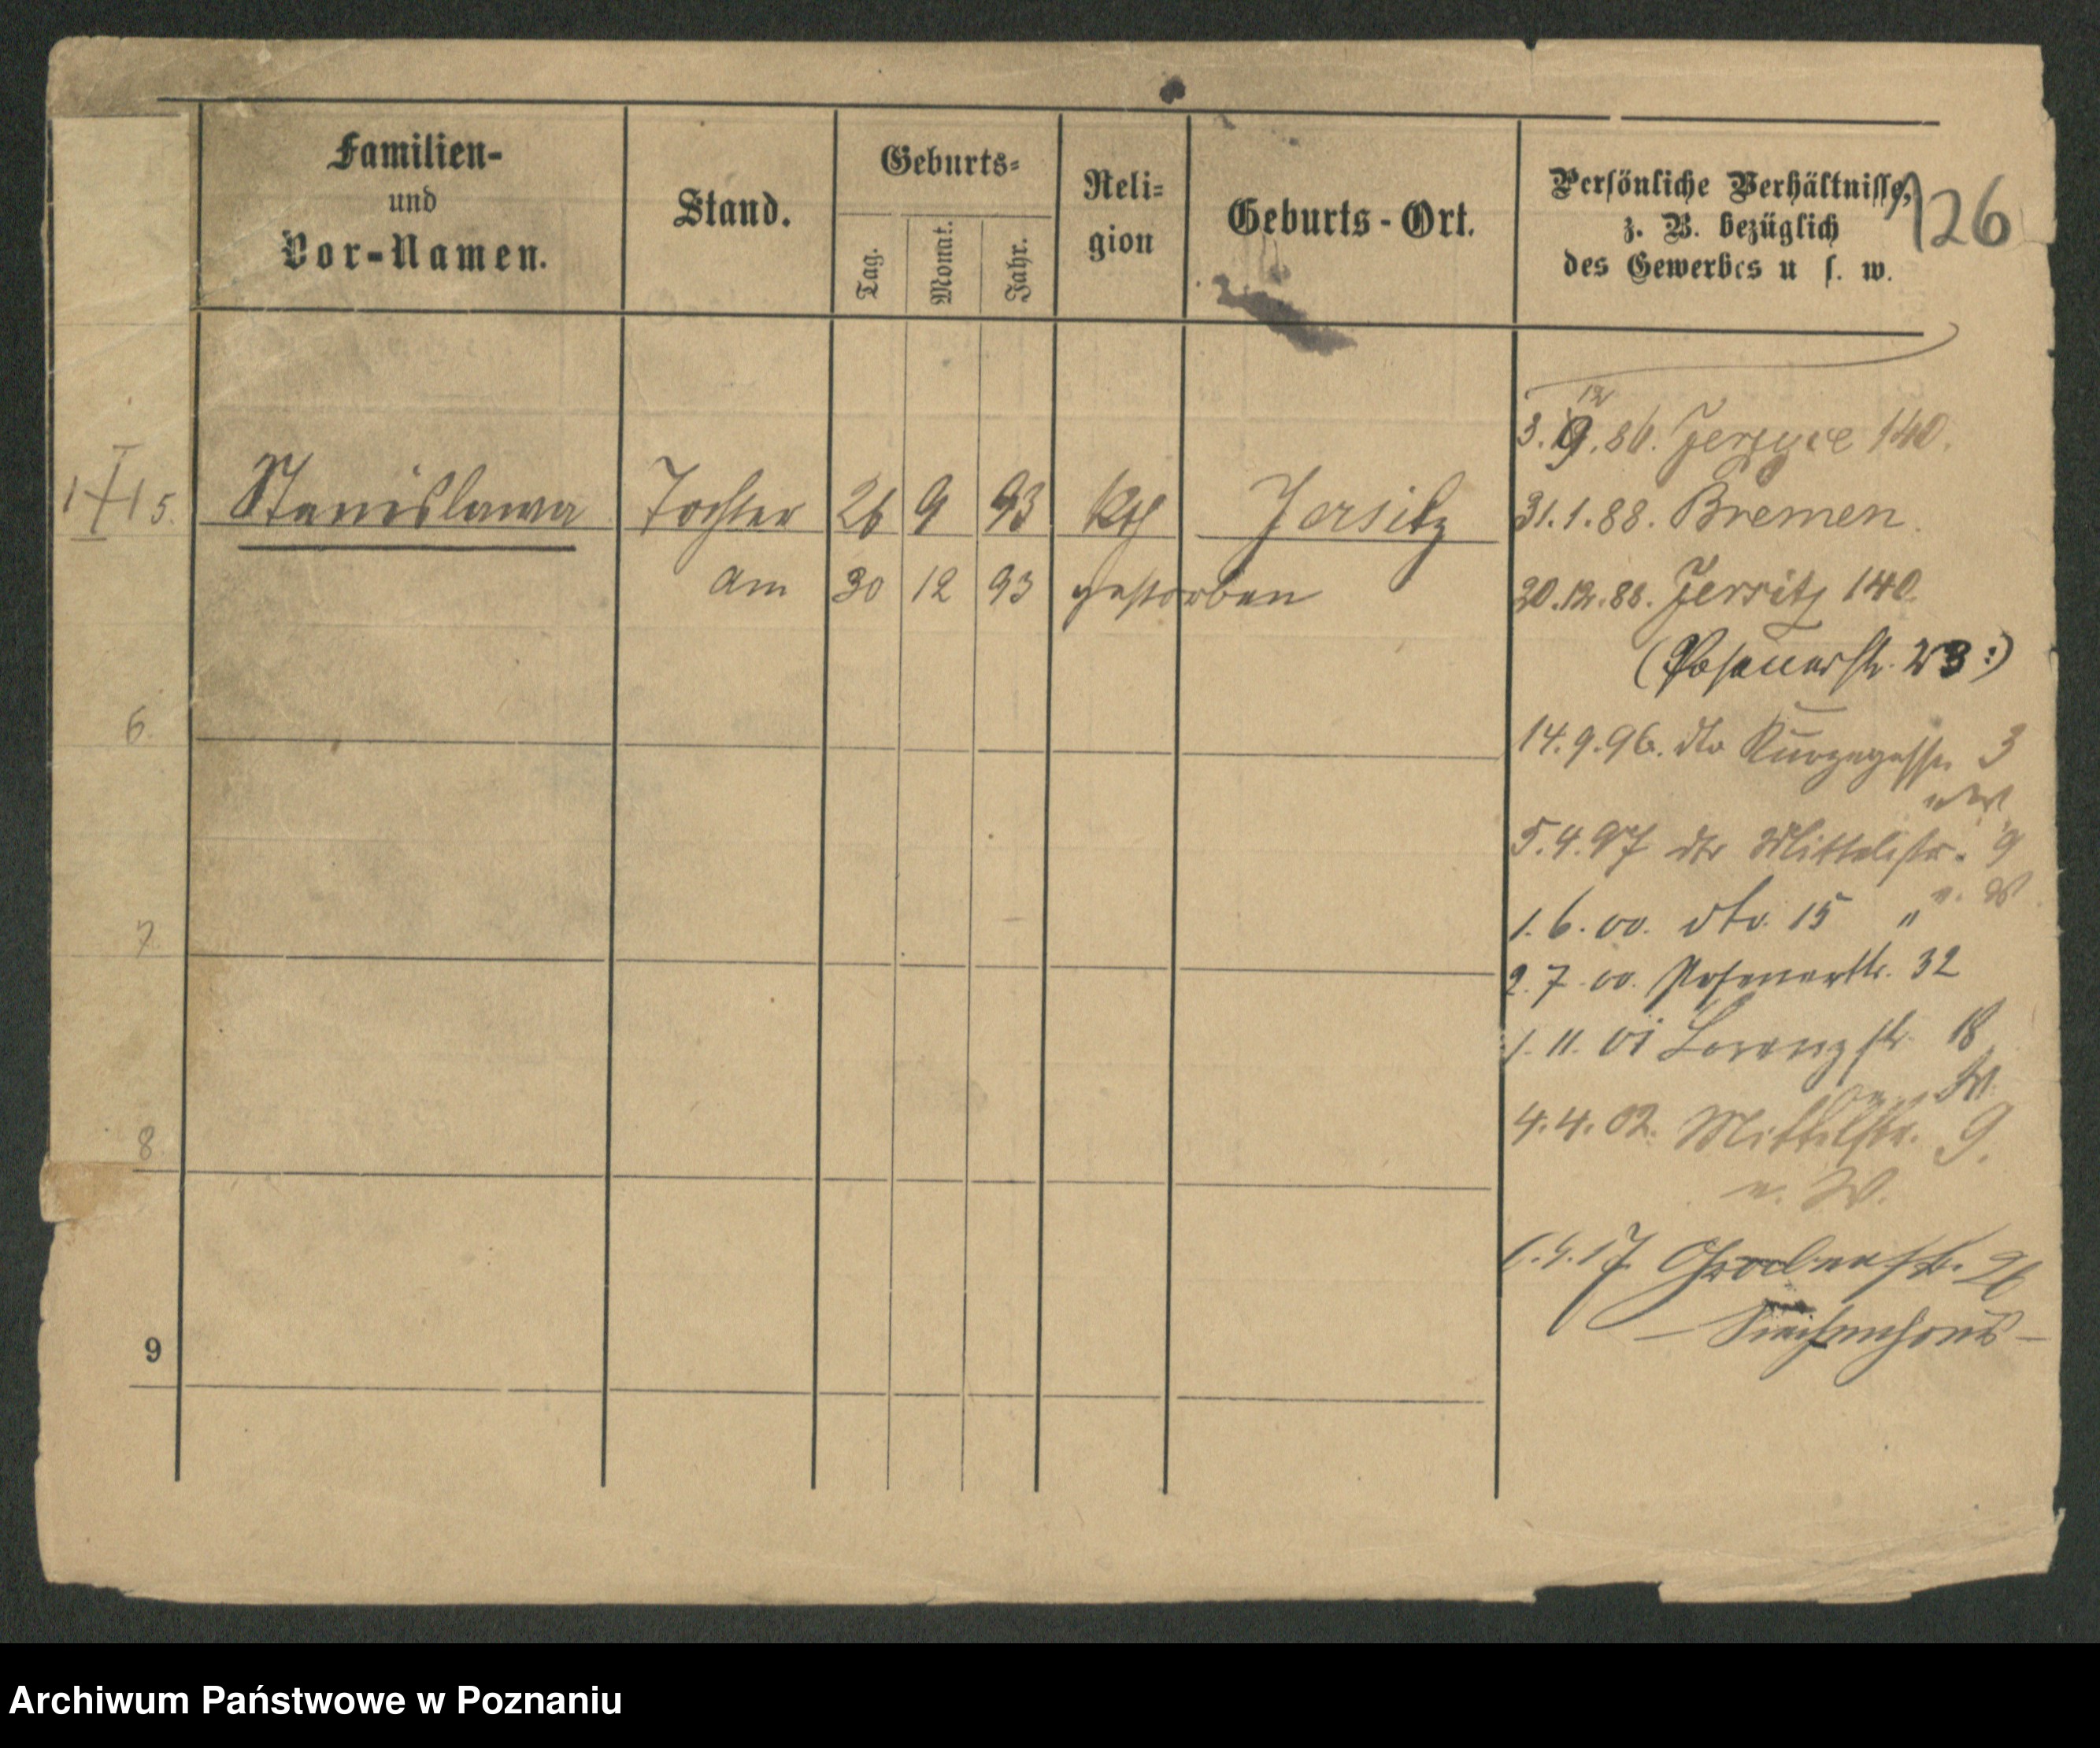 Familien-
und
Vor-Namen.
Stand.
Geburts-
Tag.
Monat.
Jahr.
Reli-
gion
Geburts-Ort.
Persönliche Verhältnisse,
z. B. bezüglich
des Gewerbes u s. w.
126
5. Stanislawa Tochter 26 9 93 kth Jersitz
am 30 12 93 gestorben
6.
7.
8
9
3. 86. 140.
31.1.88. Bremen.
20.12.88. Jersitz 140.
(Posenerstr. 23:)
14.9.96. dto Kurzegasse 3
5.4.97 dto Mittelstr. 9
1.6.00. dto. 15 "
2.7.00. Posenerstr. 32
1.11.01 Lorenzstr. 18
4.4.02. Mittelstr. 9.
n. W.
4.17. Grabenstr. 26